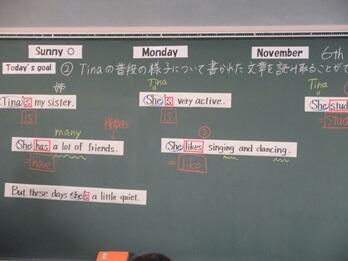 Sunny Monday November 6th
Today's goal ② Tinaの普段の様子について書かれた文章を読み取ることがで
姉 Tina Tina
Tina is my sister. She is very active. She stud
is is stud
many 複数形 ③
She has a lot of friends. She likes singing and dancing.
= have = like
But these days she's a little quiet.